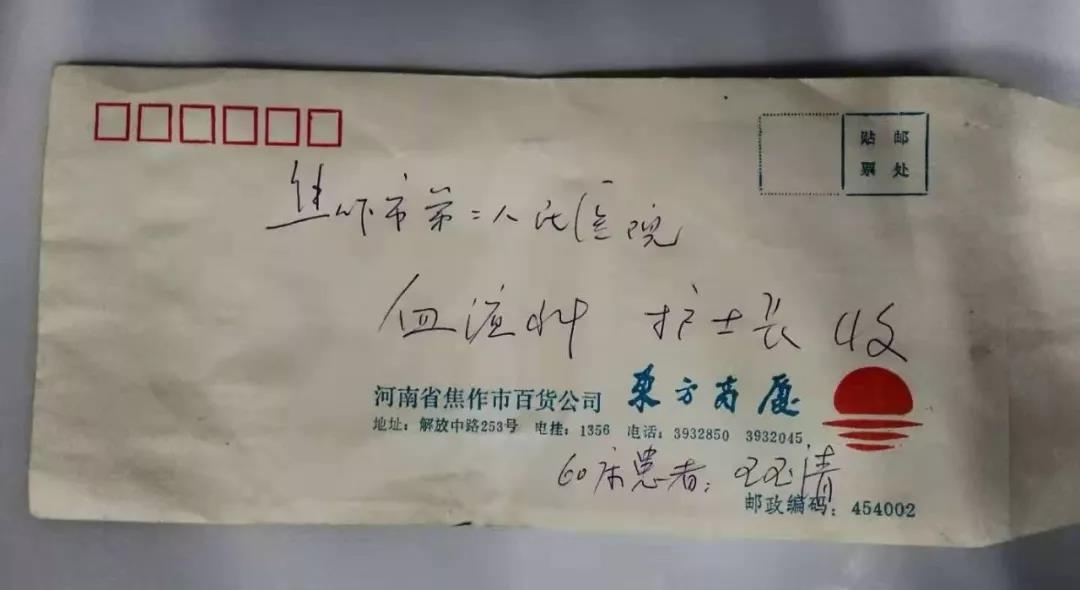 贴邮
票处
焦作市第二人民医院
血液科 护士长 收
河南省焦作市百货公司 东方商厦
地址：解放中路253号 电挂：1356 电话：3932850 3932045
60床患者：王玉清
邮政编码：454002